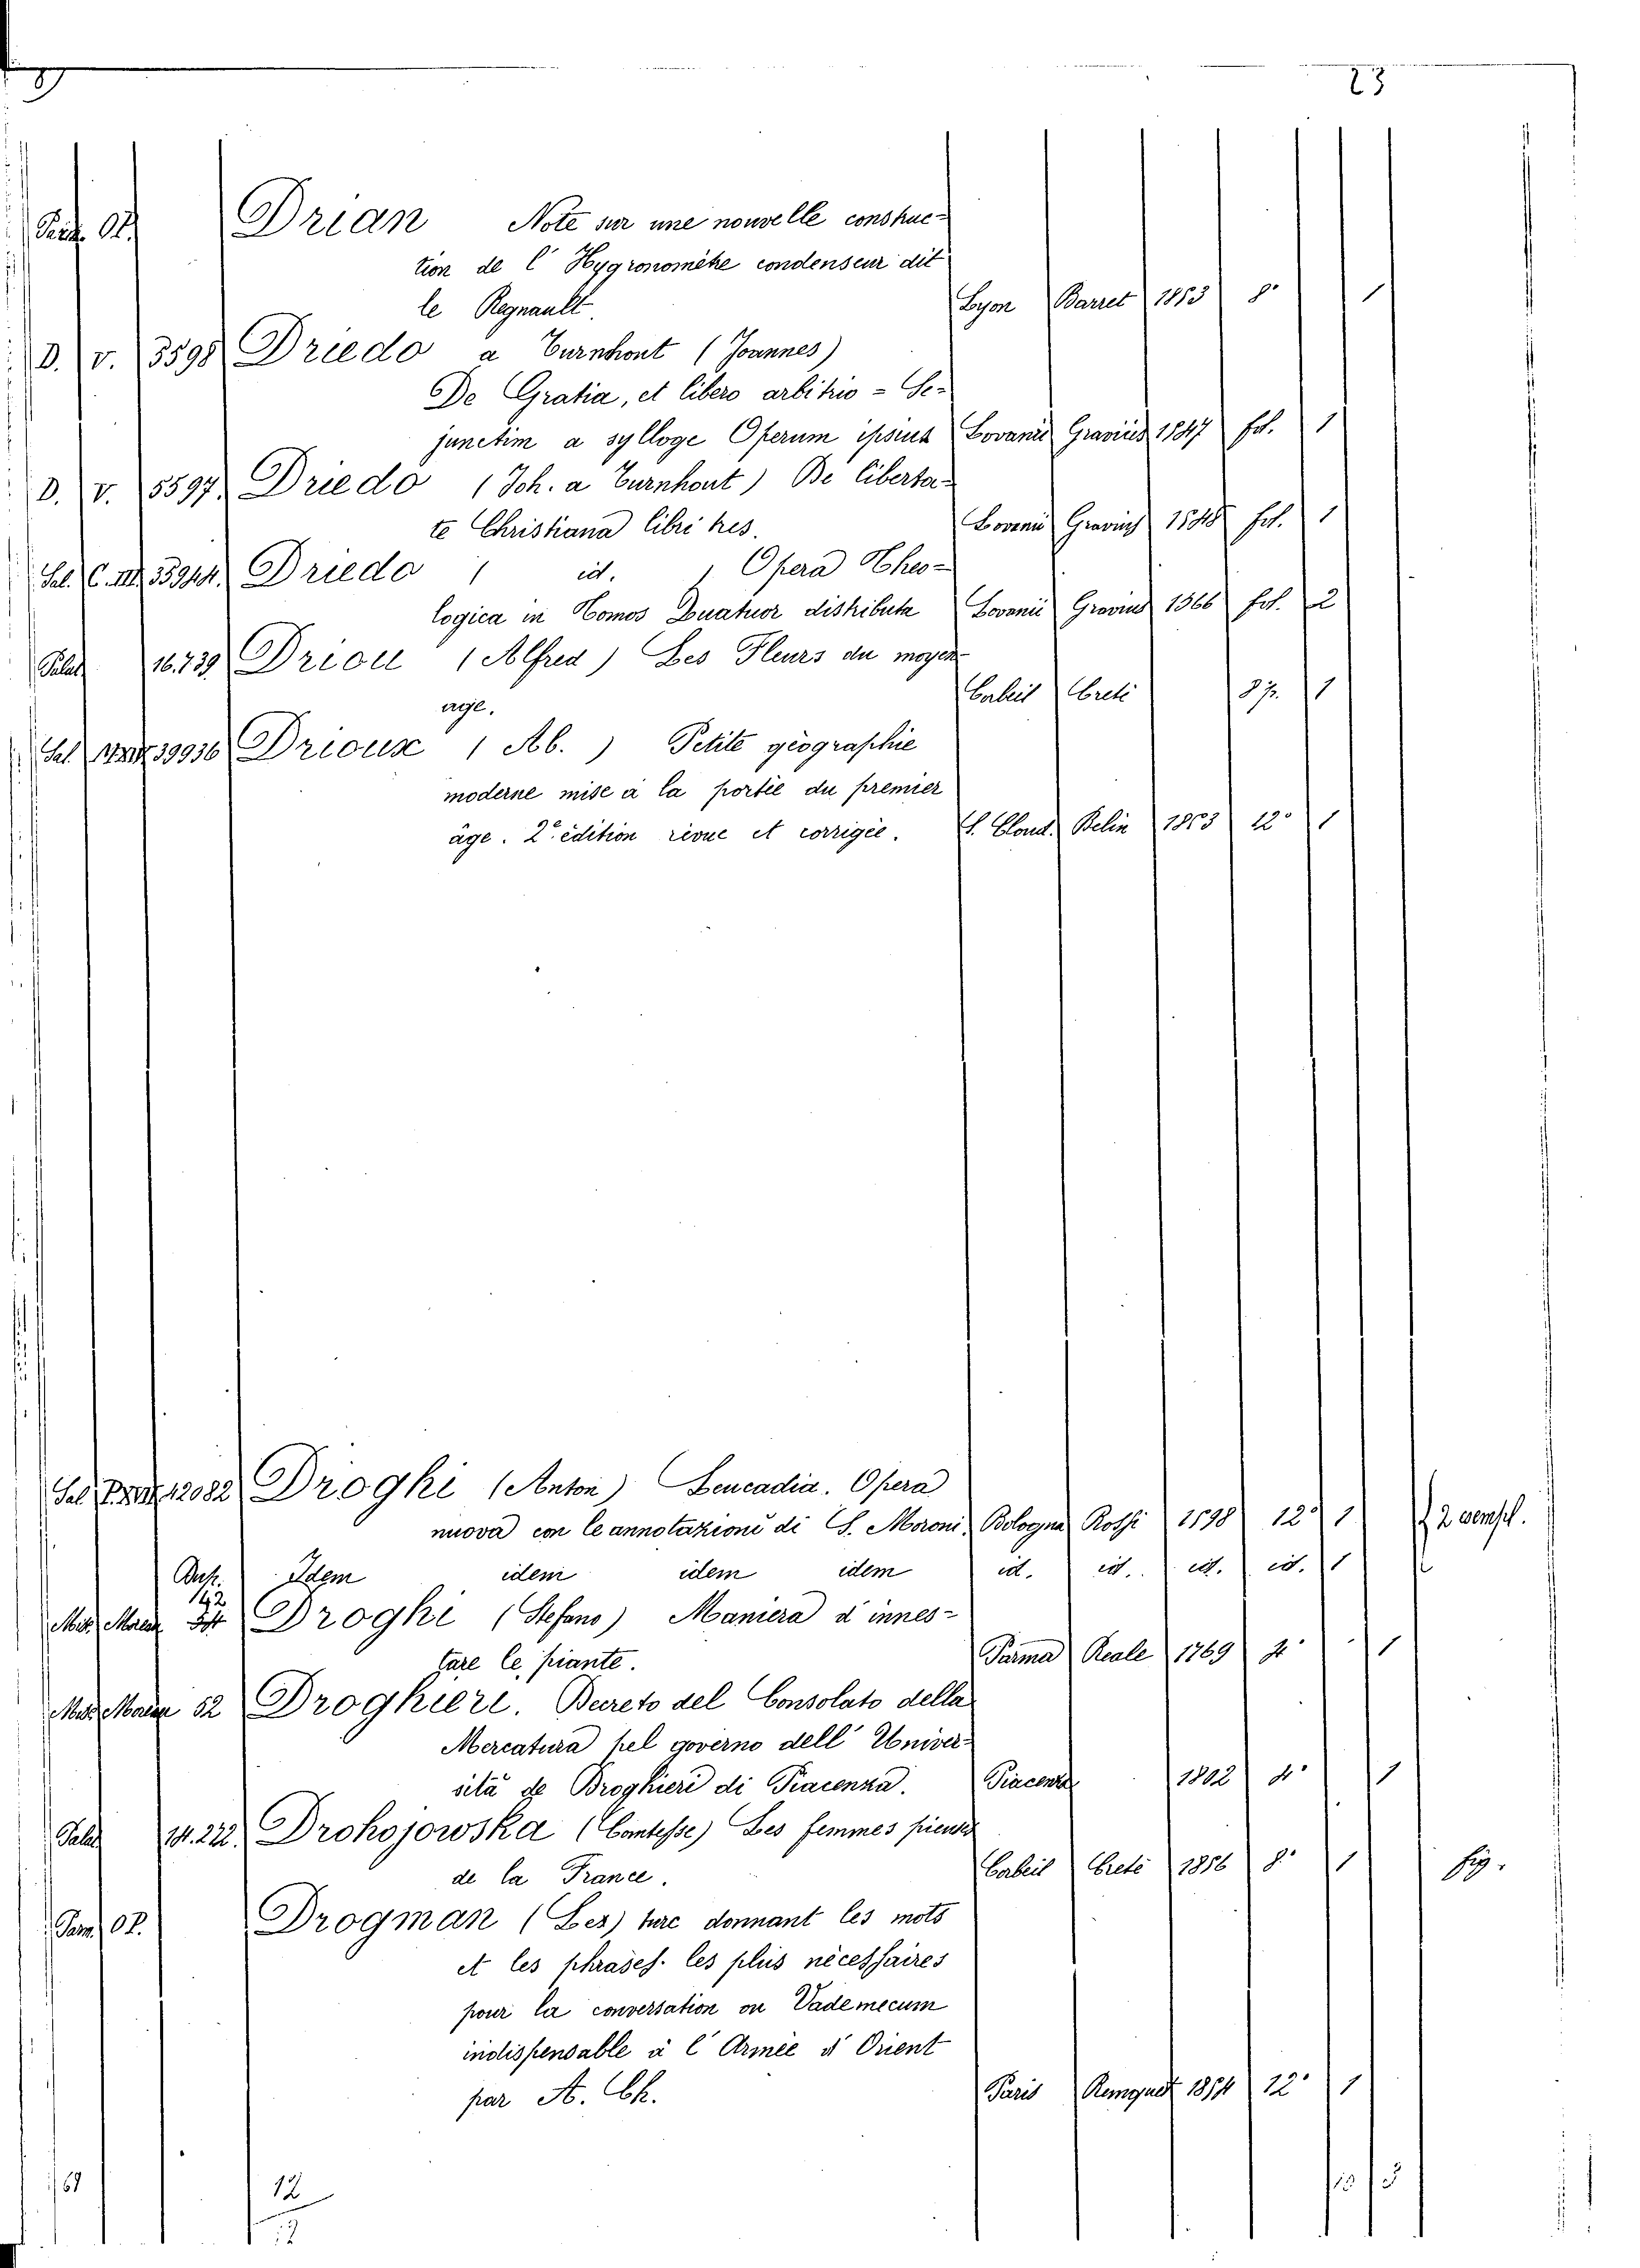 23
Drian Note sur une nouvelle construc-
tion de l' Hygronomètre condenseur dit
le Regnault. Lyon Barret 1853 8° 1
D. V. 3598 Driedo a Turnhont (Joannes)
De Gratia, et libero arbitrio - Se-
junctim a sylloge Operum ipsius Lovanii Gravius 1547 fol. 1
D. V. 5597. Driedo (Joh. a Turnhout) De liberta-
te Christiana libri tres. Lovanii Gravius 1548 fol. 1
Sal. C. III. 35944. Driedo ( id. ) Opera Theo-
logica in Tomos Quatuor distributa Lovanii Gravius 1566 fol. 2
Palat. 16.739 Driou (Alfred) Les Fleurs du moyen
age. Corbeil Creté 8° 1
Sal. 39936 Drioux (Ab.) Petite géographie
moderne mise à la portée du premier
âge. 2e édition revue et corrigée. S. Cloud. Belin 1853 12° 1
Sal. 12082 Droghi (Anton) Leucadia. Opera
nuova con le annotazioni di S. Moroni. Bologna Rossi 1598 12° 1 2 esempl.
Idem idem idem idem id. id. id. id. 1
142
Mis. Droghi (Stefano) Maniera d'innes-
tare le piante. Parma Reale 1769 4° 1
52 Droghieri. Decreto del Consolato della
Mercatura pel governo dell' Univer-
sità de Droghieri di Piacenza. Piacenza 1802 4° 1
Palat. 14.222. Drohojowska (Contesse) Les femmes pieuses
de la France. Corbeil Creté 1856 8° 1 fig.
Drogman (Les) turc donnant les mots
et les phrases les plus nécessaires
pour la conversation ou Vade mecum
indispensable à l' Armée d' Orient
par A. Ch. Paris Remquet 1854 12° 1
12